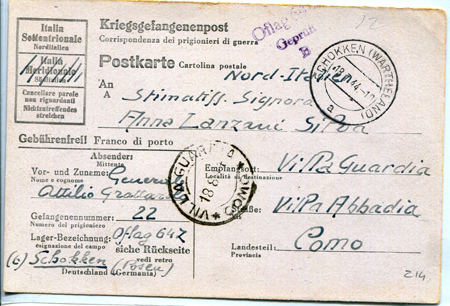 Italia
Settentrionale
Norditalien
Italia
Meridionale
Süditalien
Cancellare parole
non riguardanti
Nichtzutreffendes
streichen
Kriegsgefangenenpost
Corrispondenza dei prigionieri di guerra
Oflag 64
Geprüft
Postkarte Cartolina postale
Nord-Italien
SCHOKKEN (WARTHELAND)
a
An
A
Stimatiss. Signora
Anna Lanzani Silva
Gebührenfrei! Franco di porto
Absender:
Mittente
Vor- und Zuname: General
Nome e cognome
Attilio Grattarola
Gefangenennummer: 22
Numero del prigioniero
Lager-Bezeichnung: Oflag 64Z
esignazione del campo
siehe Rückseite
vedi retro
(6) Schokken (Posen)
Deutschland (Germania)
VILLA GUARDIA
18 8
COMO
Empfangsort: Villa Guardia
Località di destinazione
Straße: Villa Abbadia
Landesteil: Como
Provincia
214